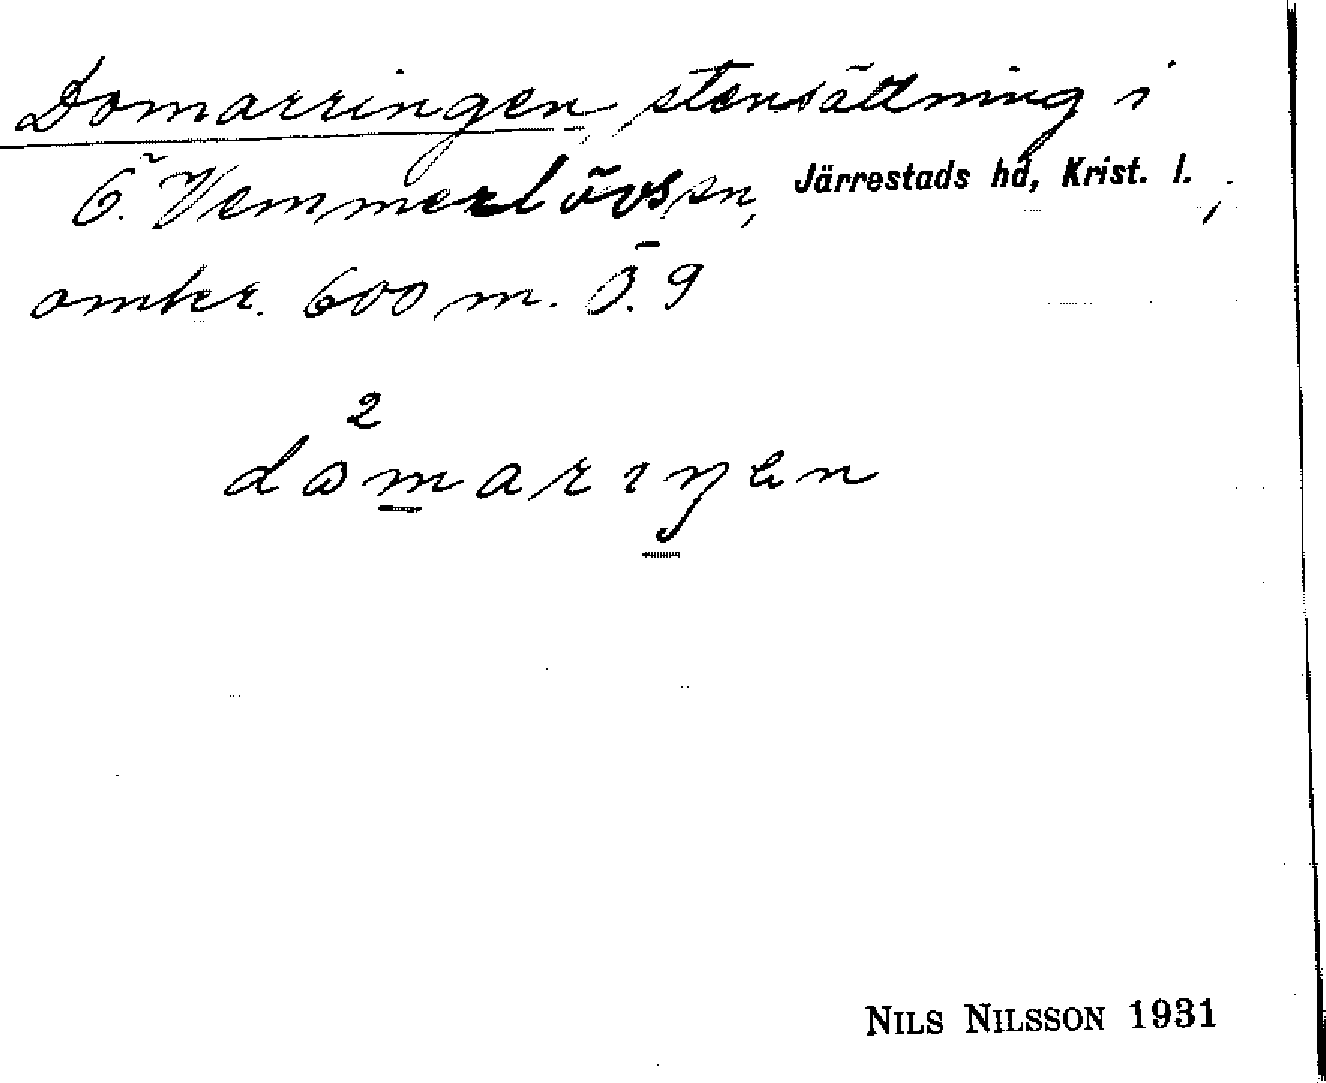 Domarringen, stensättning i
Ö. Vemmerlövs sn, Järrestads hd, Krist. l.,
omkr. 600 m. Ö. 9
2
dωmariŋen
NILS NILSSON 1931